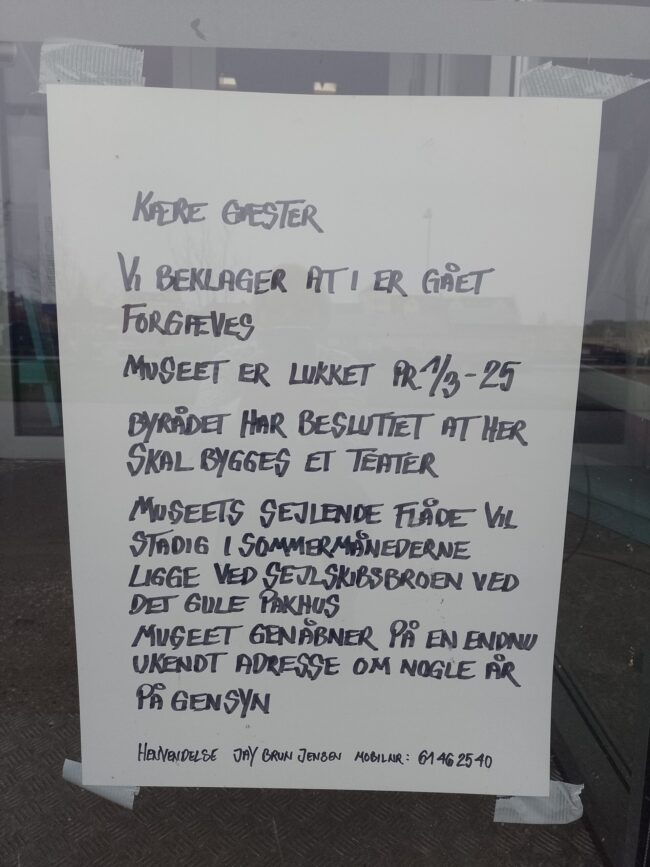 KÆRE GÆSTER
VI BEKLAGER AT I ER GÅET
FORGÆVES
MUSEET ER LUKKET PR 1/3-25
BYRÅDET HAR BESLUTTET AT HER
SKAL BYGGES ET TEATER
MUSEETS SEJLENDE FLÅDE VIL
STADIG I SOMMERMÅNEDERNE
LIGGE VED SEJLSKIBSBROEN VED
DET GULE PAKHUS
MUSEET GENÅBNER PÅ EN ENDNU
UKENDT ADRESSE OM NOGLE ÅR
PÅ GENSYN
HENVENDELSE JAY BRUN JENSEN MOBILNR: 61 46 25 40